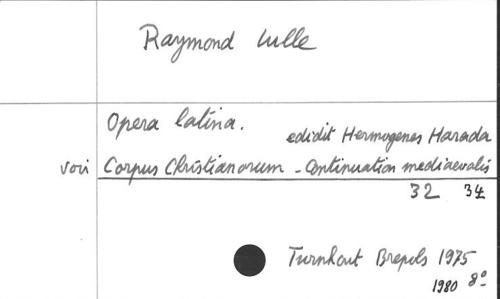 Raymond Lulle
Opera latina.
edidit Hermogenes Harada
voir Corpus Christianorum - Continuation mediaevalis
32 34
Turnhout Brepols 1975
1980 8°